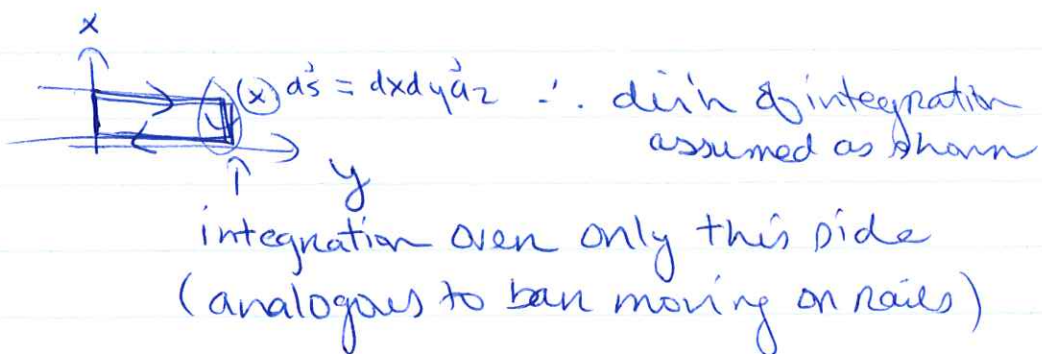 x
(x) ds⃗ = dxdy a⃗z ∴ dirn of integration
assumed as shown
y
integration over only this side
(analogous to bar moving on rails)